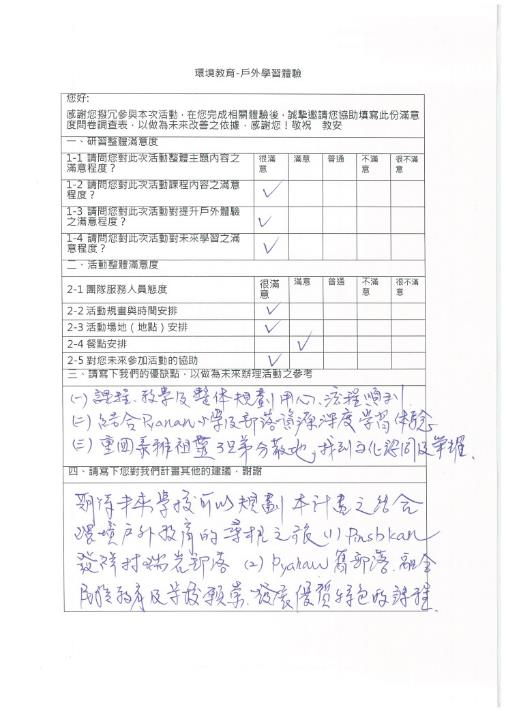 環境教育-戶外學習體驗
您好:
感謝您撥冗參與本次活動，在您完成相關體驗後，誠摯邀請您協助填寫此份滿意
度問卷調查表，以做為未來改善之依據，感謝您！敬祝　教安
一、研習整體滿意度
1-1 請問您對此次活動整體主題內容之滿意程度？ 很滿意 滿意 普通 不滿意 很不滿意
1-2 請問您對此次活動課程內容之滿意程度？ ✓
1-3 請問您對此次活動對提升戶外體驗之滿意程度？ ✓
1-4 請問您對此次活動對未來學習之滿意程度？ ✓
二、活動整體滿意度
2-1 團隊服務人員態度 很滿意 滿意 普通 不滿意 很不滿意
2-2 活動規畫與時間安排 ✓
2-3 活動場地（地點）安排 ✓
2-4 餐點安排 ✓
2-5 對您未來參加活動的協助 ✓
三、請寫下我們的優缺點，以做為未來辦理活動之參考
(一) 課程、教學及整体規劃用心、流程順利
(二) 結合 小學及部落資源深度學習体驗
(三) 重回泰雅祖靈 兄弟分散地，找到文化認同及
四、請寫下您對我們計畫其他的建議，謝謝
期待未來學校可以規劃本計畫之結合
環境戶外教育的尋根之旅 (1) Pinsbkan
發祥村瑞岩部落 (2) Pyahaw 舊部落，融合
民族教育及學校願景，發展優質特色的課程